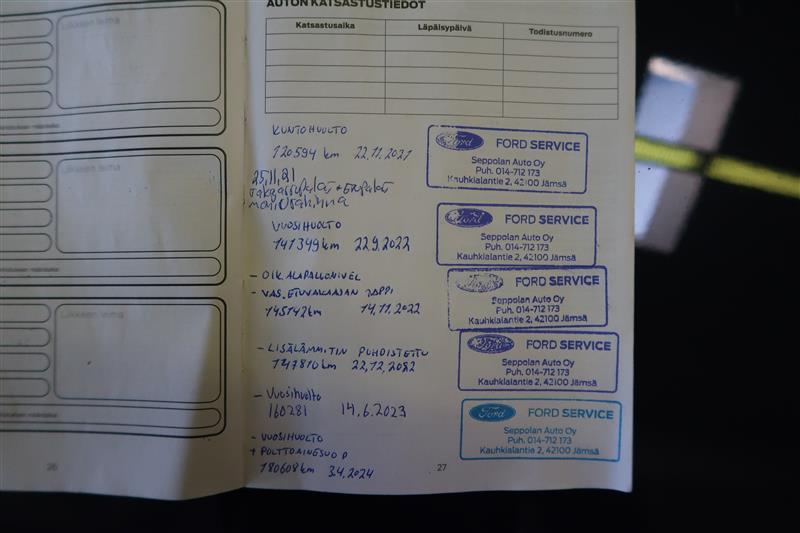 Liikkeen leima
Liikkeen leima
Liikkeen leima
26
AUTON KATSASTUSTIEDOT
Katsastusaika Läpäisypäivä Todistusnumero
KUNTOHUOLTO
120594 km 22.11.2021
Ford FORD SERVICE
Seppolan Auto Oy
Puh. 014-712 173
Kauhkialantie 2, 42100 Jämsä
25.11.21
VUOSIHUOLTO
141349 km 22.9.2022
Ford FORD SERVICE
Seppolan Auto Oy
Puh. 014-712 173
Kauhkialantie 2, 42100 Jämsä
- OIK. ALAPALLONIVEL
- VAS. ETUVAKAAJAN TAPPI
145142km 14.11.2022
FORD SERVICE
Seppolan Auto Oy
Puh. 014-712 173
Kauhkialantie 2, 42100 Jämsä
- LISÄLÄMMITIN PUHDISTETTU
147810 km 22.12.2022
Ford FORD SERVICE
Seppolan Auto Oy
Puh. 014-712 173
Kauhkialantie 2, 42100 Jämsä
- Vuosihuolto
160281 14.6.2023
Ford FORD SERVICE
Seppolan Auto Oy
Puh. 014-712 173
Kauhkialantie 2, 42100 Jämsä
- VUOSIHUOLTO
+ POLTTOAINESUO D
180608km 3.4.2024
27